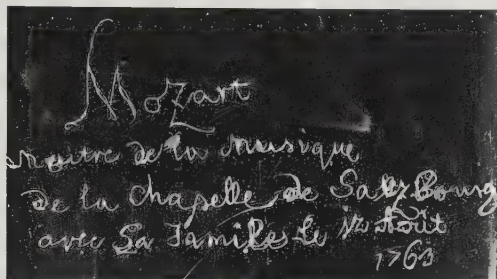 Mozart
maitre de la musique
de la Chapelle de Salzbourg
avec Sa Famile le 12 Août
1763